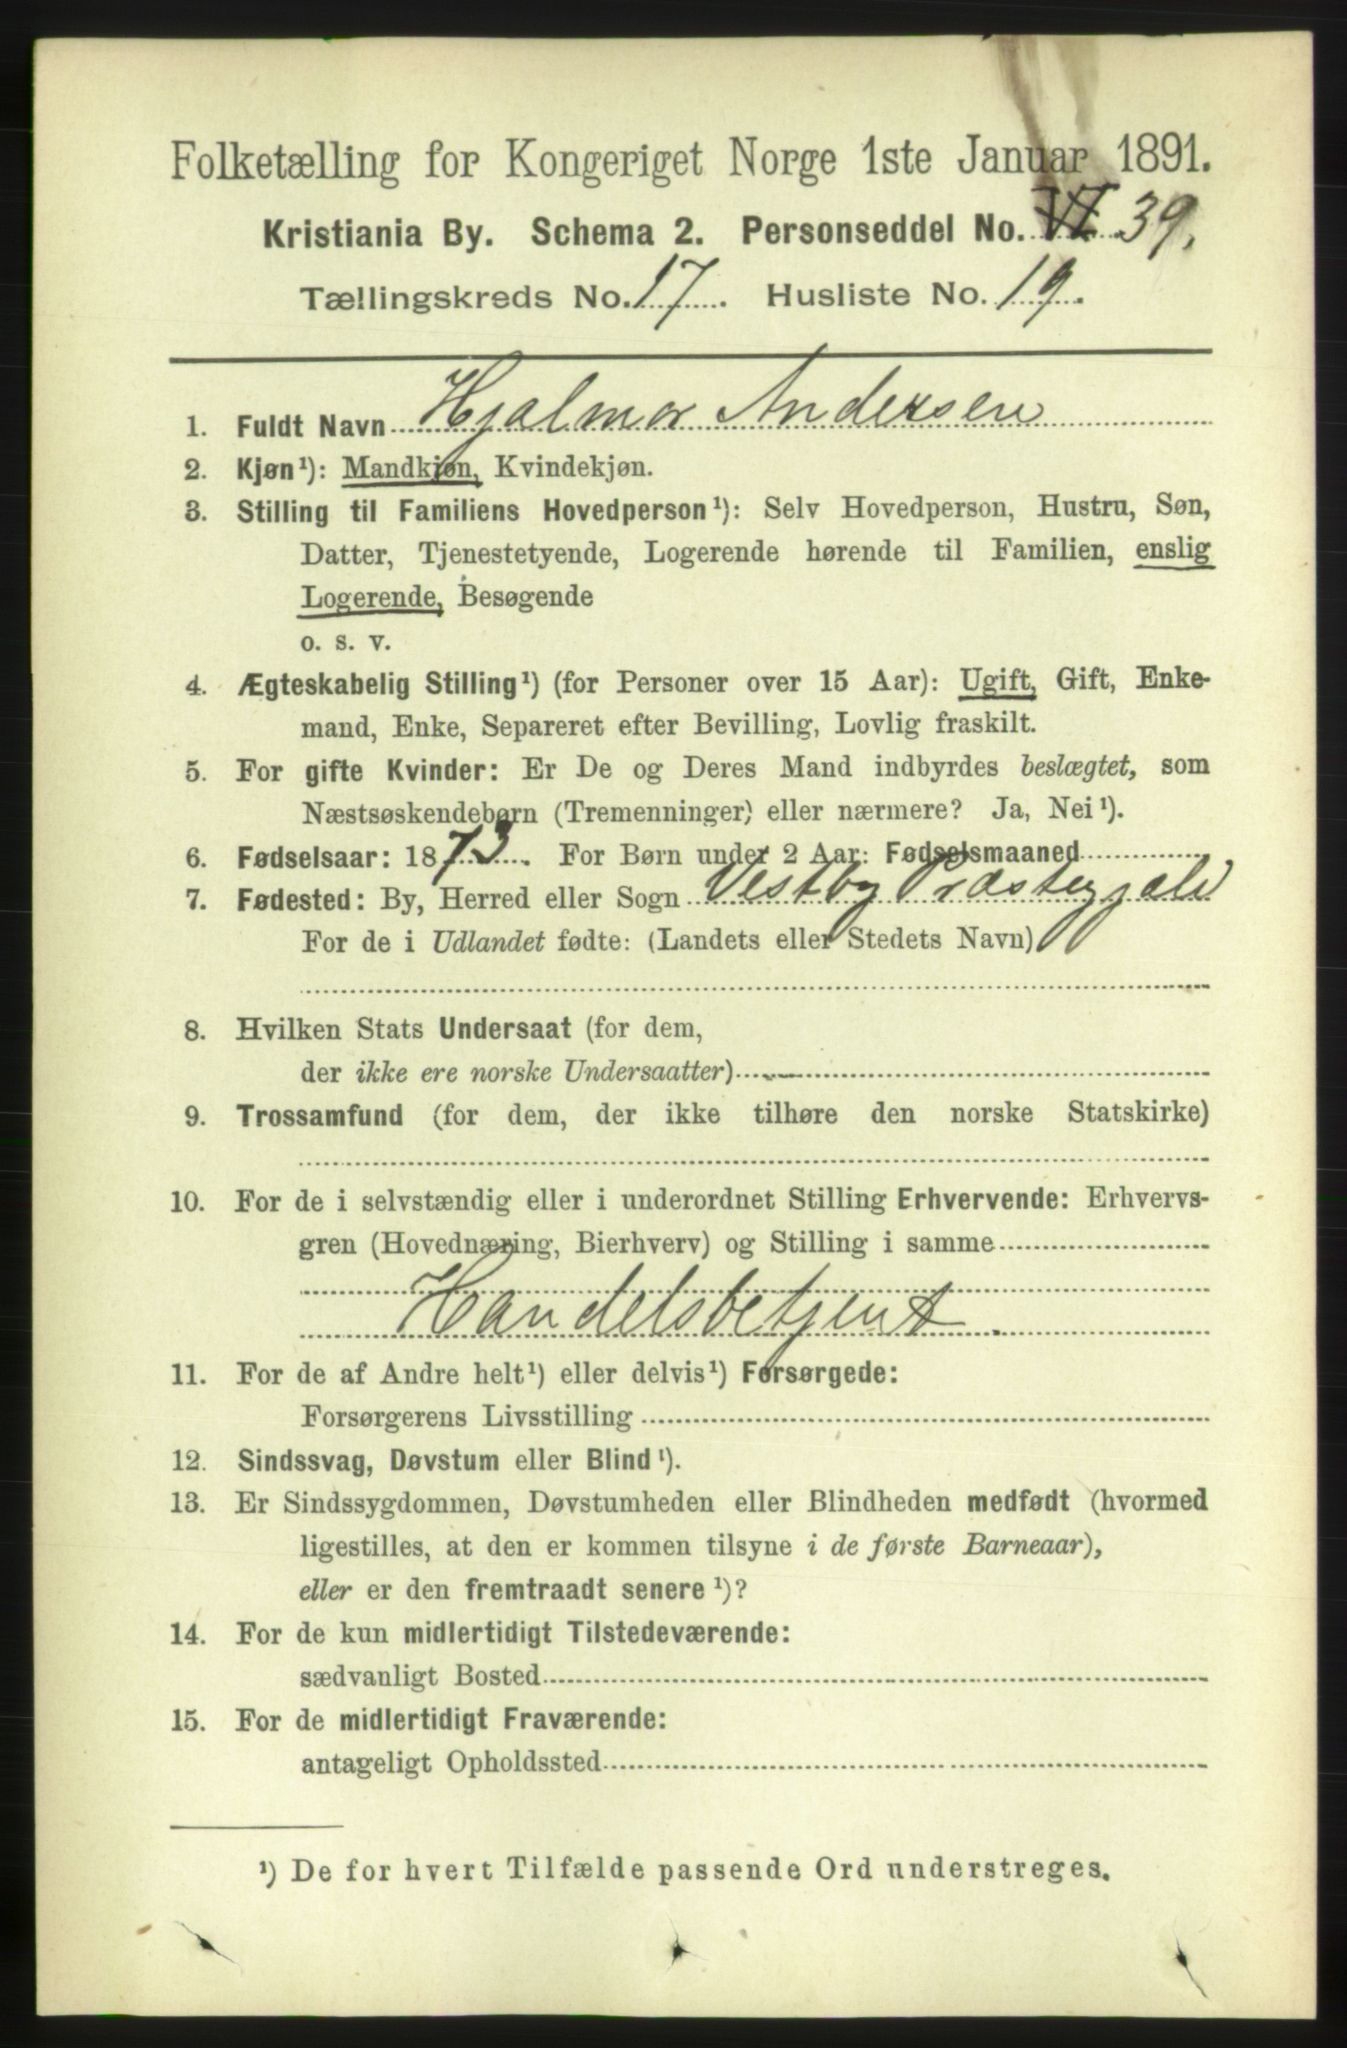 Folketælling for Kongeriget Norge 1ste Januar 1891.
Kristiania By. Schema 2. Personseddel No. 39.
Tællingskreds No. 17. Husliste No. 19.
1. Fuldt Navn Hjalmar Andersen
2. Kjøn¹): Mandkjøn, Kvindekjøn.
3. Stilling til Familiens Hovedperson¹): Selv Hovedperson, Hustru, Søn,
Datter, Tjenestetyende, Logerende hørende til Familien, enslig
Logerende, Besøgende
o. s. v.
4. Ægteskabelig Stilling¹) (for Personer over 15 Aar): Ugift, Gift, Enke-
mand, Enke, Separeret efter Bevilling, Lovlig fraskilt.
5. For gifte Kvinder: Er De og Deres Mand indbyrdes beslægtet, som
Næstsøskendebørn (Tremenninger) eller nærmere? Ja, Nei¹).
6. Fødselsaar: 1873. For Børn under 2 Aar: Fødselsmaaned
7. Fødested: By, Herred eller Sogn Vestby Præstegjæld
For de i Udlandet fødte: (Landets eller Stedets Navn)
8. Hvilken Stats Undersaat (for dem,
der ikke ere norske Undersaatter)
9. Trossamfund (for dem, der ikke tilhøre den norske Statskirke)
10. For de i selvstændig eller i underordnet Stilling Erhvervende: Erhvervs-
gren (Hovednæring, Bierhverv) og Stilling i samme
Handelsbetjent.
11. For de af Andre helt¹) eller delvis¹) Forsørgede:
Forsørgerens Livsstilling
12. Sindssvag, Døvstum eller Blind¹).
13. Er Sindssygdommen, Døvstumheden eller Blindheden medfødt (hvormed
ligestilles, at den er kommen tilsyne i de første Barneaar),
eller er den fremtraadt senere¹)?
14. For de kun midlertidigt Tilstedeværende:
sædvanligt Bosted
15. For de midlertidigt Fraværende:
antageligt Opholdssted
¹) De for hvert Tilfælde passende Ord understreges.